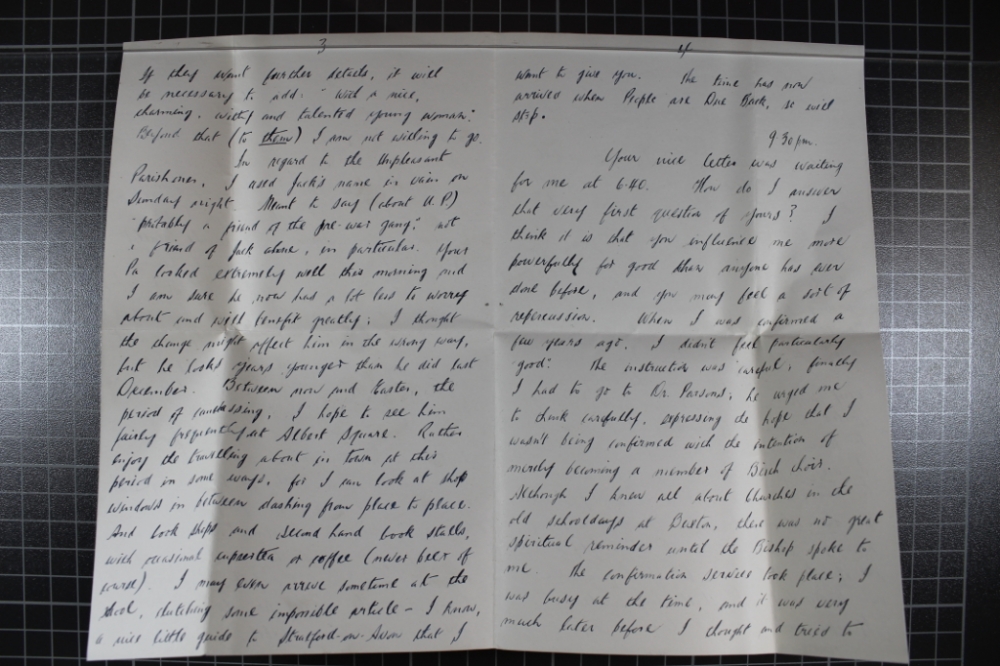 3
If they want further details, it will
be necessary to add: "With a nice,
charming, witty and talented young woman."
Beyond that (to them) I am not willing to go.
In regard to the Unpleasant
Parishoner, I used Jack's name in vain on
Sunday night. Meant to say (about U.P.)
"probably a friend of the pre-war gang," not
a friend of Jack alone, in particular. Your
Pa looked extremely well this morning and
I am sure he now has a lot less to worry
about and will benefit greatly; I thought
the change might affect him in the wrong way,
but he looks years younger than he did last
December. Between now and Easter, the
period of canvassing, I hope to see him
fairly frequently at Albert Square. Rather
enjoy the travelling about in town at this
period in some ways, for I can look at shop
windows in between dashing from place to place.
And book shops and second hand book stalls,
with occasional or coffee (never beer of
course). I may even arrive sometime at the
clutching some impossible article - I know,
a nice little guide to Stratford-on-Avon that I
4
want to give you. The time has now
arrived when People are Due Back, so will
stop.
9.30 pm.
Your nice letter was waiting
for me at 6.40. How do I answer
that very first question of yours? I
think it is that you influence me more
powerfully for good than anyone has ever
done before, and you may feel a sort of
repercussion. When I was confirmed a
few years ago, I didn't feel particularly
"good". The instruction was careful, finally
I had to go to Dr. Parsons; he urged me
to think carefully, expressing the hope that I
wasn't being confirmed with the intention of
merely becoming a member of Birch choir.
Although I knew all about Churches in the
old schooldays at Buxton, there was no great
spiritual reminder until the Bishop spoke to
me. The confirmation service took place; I
was busy at the time, and it was very
much later before I thought and tried to